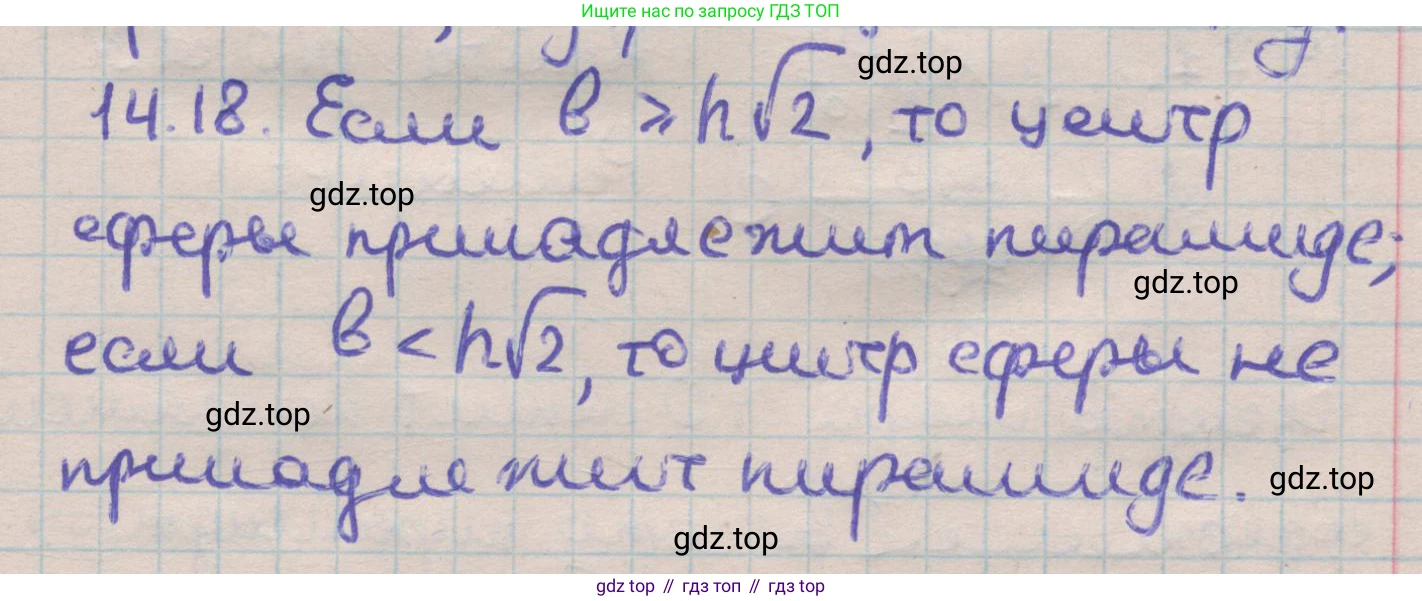 Ищите нас по запросу ГДЗ ТОП
gdz.top
14.18. Если в ⩾ h√2, то центр
gdz.top
сферы принадлежит пирамиде;
gdz.top
если в < h√2, то центр сферы не
gdz.top
принадлежит пирамиде.
gdz.top
gdz.top
gdz top // гдз топ // гдз top